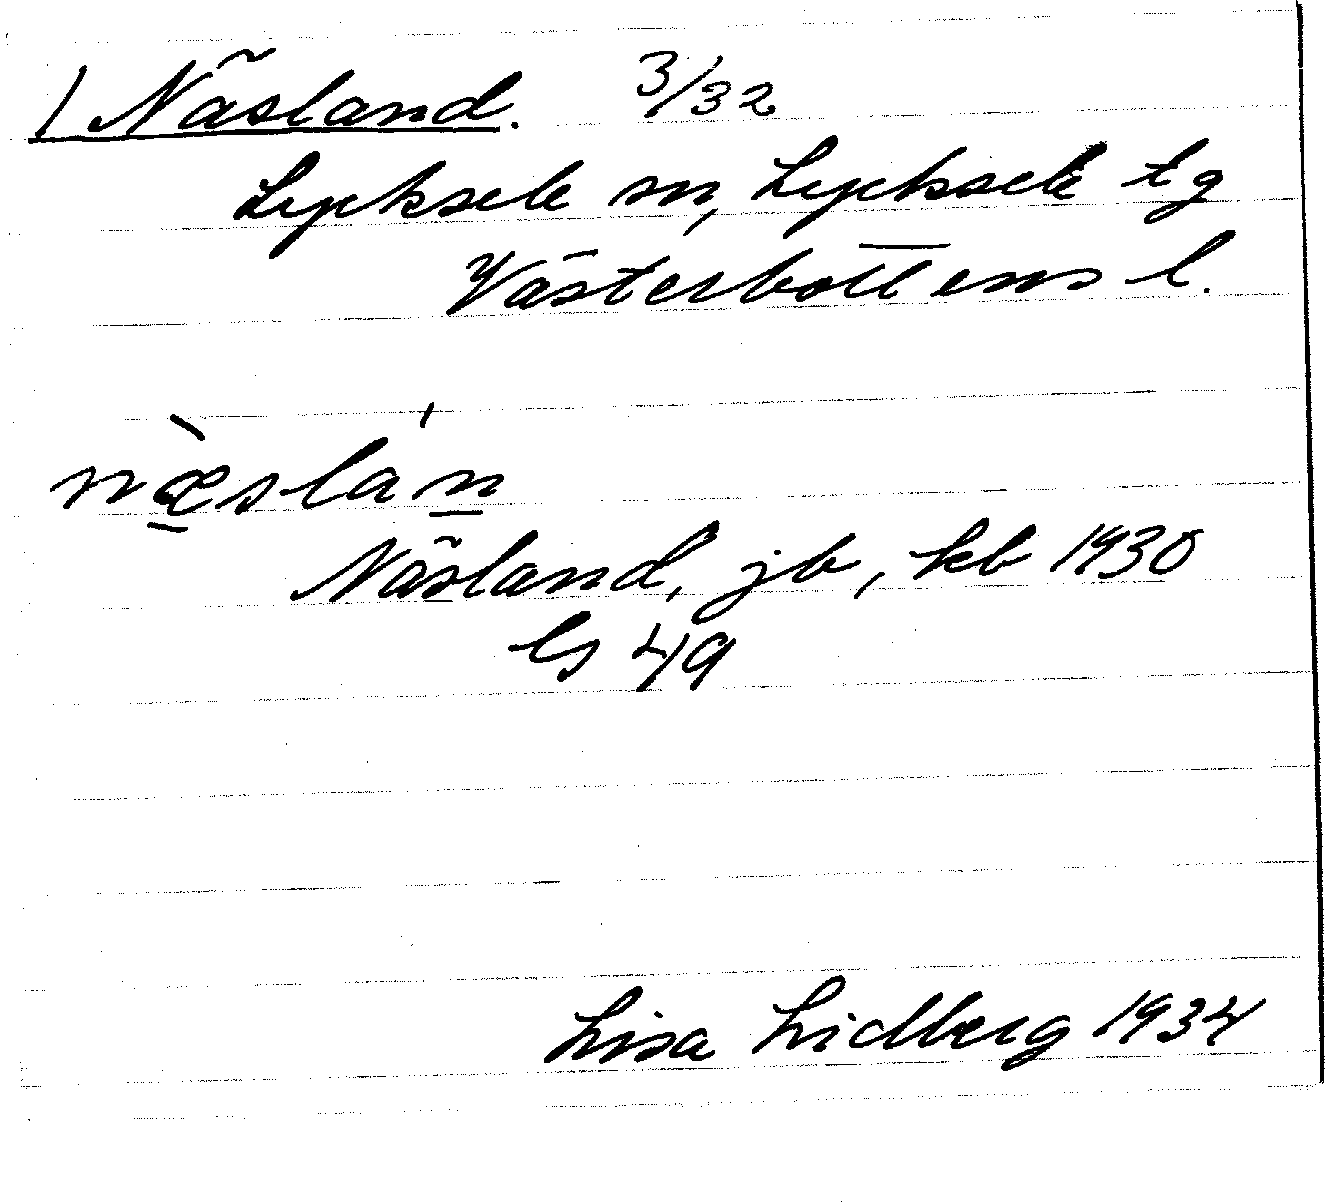 1 Näsland. 3/32
Lycksele sn, Lycksele tg
Västerbottens l.
næ̀slán
Näsland, jb, kb 1930
Gs 49
Lisa Lidberg 1934